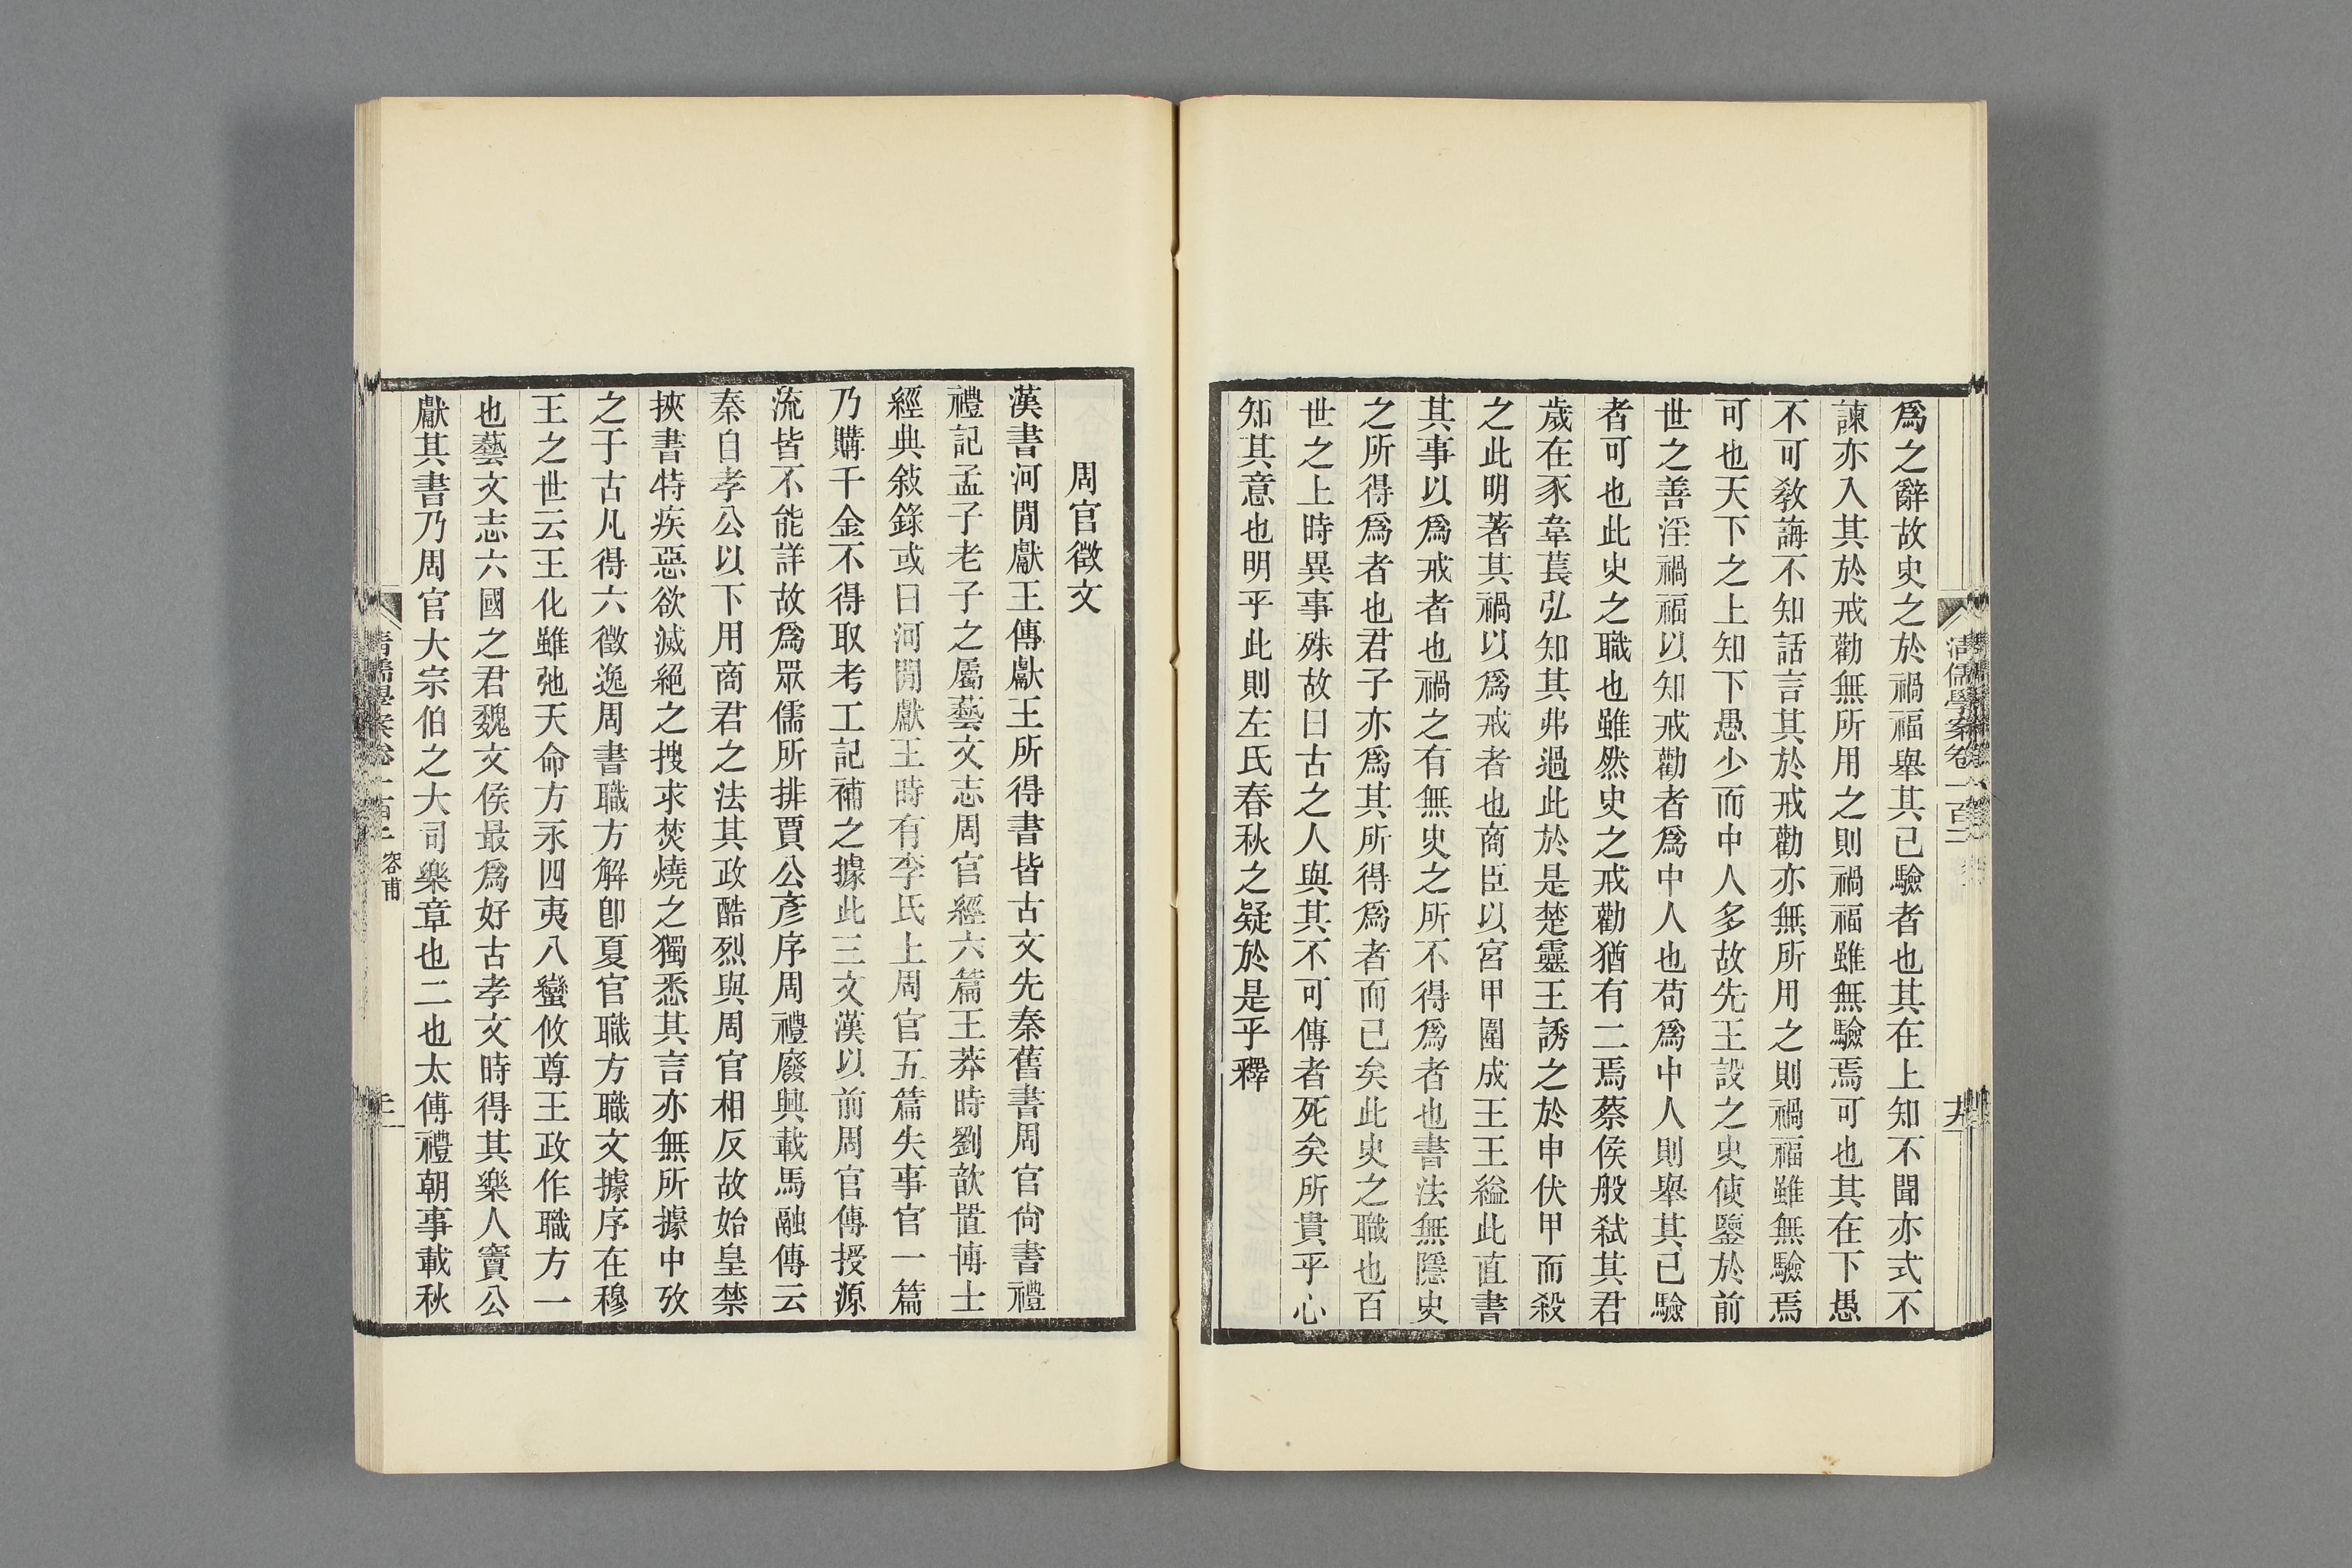 爲之辭故史之於禍福舉其已驗者也其在上知不聞亦式不
諫亦入其於戒勸無所用之則禍福雖無驗焉可也其在下愚
不可敎誨不知話言其於戒勸亦無所用之則禍福雖無驗焉
可也天下之上知下愚少而中人多故先王設之史使鑒於前
世之善淫禍福以知戒勸者爲中人也苟爲中人則舉其已驗
者可也此史之職也雖然史之戒勸猶有二焉蔡侯般弑其君
歲在豕韋萇弘知其弗過此於是楚靈王誘之於申伏甲而殺
之此明著其禍以爲戒者也商臣以宮甲圍成王王縊此直書
其事以爲戒者也禍之有無史之所不得爲者也書法無隱史
之所得爲者也君子亦爲其所得爲者而已矣此史之職也百
世之上時異事殊故曰古之人與其不可傳者死矣所貴乎心
知其意也明乎此則左氏春秋之疑於是乎釋
清儒學案卷一百二
周官徵文
漢書河閒獻王傳獻王所得書皆古文先秦舊書周官尙書禮
禮記孟子老子之屬藝文志周官經六篇王莽時劉歆置博士
經典敍錄或曰河閒獻王時有李氏上周官五篇失事官一篇
乃購千金不得取考工記補之據此三文漢以前周官傳授源
流皆不能詳故爲眾儒所排賈公彥序周禮廢興載馬融傳云
秦自孝公以下用商君之法其政酷烈與周官相反故始皇禁
挾書特疾惡欲滅絕之搜求焚燒之獨悉其言亦無所據中攷
之于古凡得六徵逸周書職方解卽夏官職方職文據序在穆
王之世云王化雖弛天命方永四夷八蠻攸尊王政作職方一
也藝文志六國之君魏文侯最爲好古孝文時得其樂人竇公
獻其書乃周官大宗伯之大司樂章也二也太傅禮朝事載秋
清儒學案卷一百二 容甫